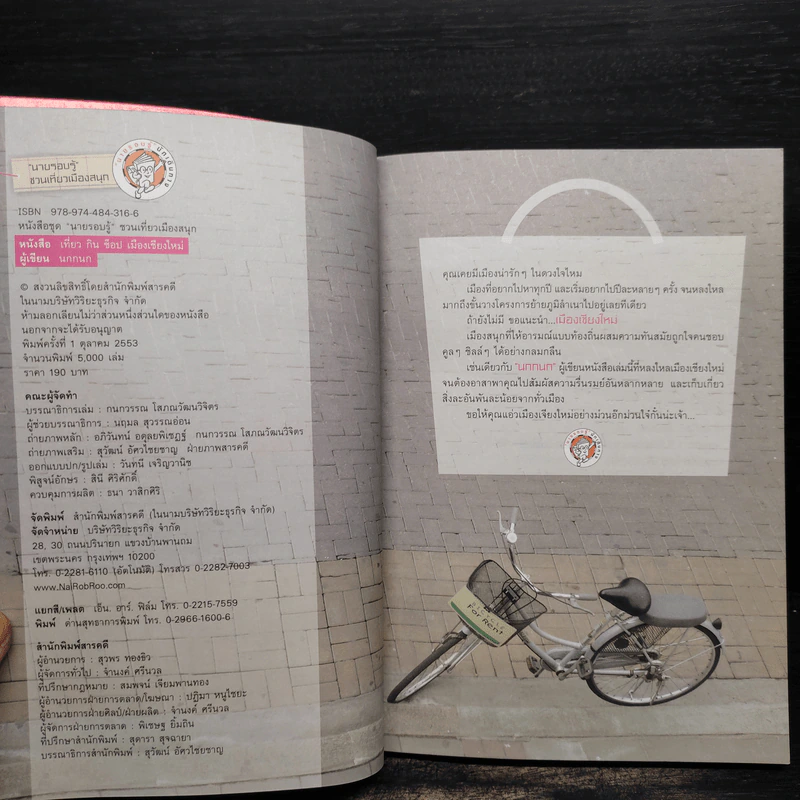 "นายรอบรู้"
ชวนเที่ยวเมืองสนุก
นายรอบรู้ นักเดินทาง
ISBN 978-974-484-316-6
หนังสือชุด "นายรอบรู้" ชวนเที่ยวเมืองสนุก
หนังสือ เที่ยว กิน ช็อป เมืองเชียงใหม่
ผู้เขียน นกกนก
© สงวนลิขสิทธิ์โดยสำนักพิมพ์สารคดี
ในนามบริษัทวิริยะธุรกิจ จำกัด
ห้ามลอกเลียนไม่ว่าส่วนหนึ่งส่วนใดของหนังสือ
นอกจากจะได้รับอนุญาต
พิมพ์ครั้งที่ 1 ตุลาคม 2553
จำนวนพิมพ์ 5,000 เล่ม
ราคา 190 บาท
คณะผู้จัดทำ
บรรณาธิการเล่ม : กนกวรรณ โสภณวัฒนวิจิตร
ผู้ช่วยบรรณาธิการ : นฤมล สุวรรณอ่อน
ถ่ายภาพหลัก : อภิรันทน์ อดุลยพิเชฏฐ์ กนกวรรณ โสภณวัฒนวิจิตร
ถ่ายภาพเสริม : สุวัฒน์ อัศวไชยชาญ ฝ่ายภาพสารคดี
ออกแบบปก/รูปเล่ม : วันทนี เจริญวานิช
พิสูจน์อักษร : สินี ศิริศักดิ์
ควบคุมการผลิต : ธนา วาสิกศิริ
จัดพิมพ์ สำนักพิมพ์สารคดี (ในนามบริษัทวิริยะธุรกิจ จำกัด)
จัดจำหน่าย บริษัทวิริยะธุรกิจ จำกัด
28, 30 ถนนปรินายก แขวงบ้านพานถม
เขตพระนคร กรุงเทพฯ 10200
โทร. 0-2281-6110 (อัตโนมัติ) โทรสาร 0-2282-7003
www.NaiRobRoo.com
แยกสี/เพลต เอ็น. อาร์. ฟิล์ม โทร. 0-2215-7559
พิมพ์ ด่านสุทธาการพิมพ์ โทร. 0-2966-1600-6
สำนักพิมพ์สารคดี
ผู้อำนวยการ : สุวพร ทองธิว
ผู้จัดการทั่วไป : จำนงค์ ศรีนวล
ที่ปรึกษากฎหมาย : สมพจน์ เจียมพานทอง
ผู้อำนวยการฝ่ายการตลาด/โฆษณา : ปฏิมา หนูไชยะ
ผู้อำนวยการฝ่ายศิลป์/ฝ่ายผลิต : จำนงค์ ศรีนวล
ผู้จัดการฝ่ายการตลาด : พิเชษฐ ยิ้มถิน
ที่ปรึกษาสำนักพิมพ์ : สุดารา สุจฉายา
บรรณาธิการสำนักพิมพ์ : สุวัฒน์ อัศวไชยชาญ
คุณเคยมีเมืองน่ารักๆ ในดวงใจไหม
เมืองที่อยากไปหาทุกปี และเริ่มอยากไปปีละหลายๆ ครั้ง จนหลงใหล
มากถึงขั้นวางโครงการย้ายภูมิลำเนาไปอยู่เลยทีเดียว
ถ้ายังไม่มี ขอแนะนำ...เมืองเชียงใหม่
เมืองสนุกที่ให้อารมณ์แบบท้องถิ่นผสมความทันสมัยถูกใจคนชอบ
คูลๆ ชิลล์ๆ ได้อย่างกลมกลืน
เช่นเดียวกับ "นกกนก" ผู้เขียนหนังสือเล่มนี้ที่หลงใหลเมืองเชียงใหม่
จนต้องอาสาพาคุณไปสัมผัสความรื่นรมย์อันหลากหลาย และเก็บเกี่ยว
สิ่งละอันพันละน้อยจากทั่วเมือง
ขอให้คุณแอ่วเมืองเจียงใหม่อย่างม่วนอีกม่วนใจ๋กั๋นน่ะเจ้า...
For Rent